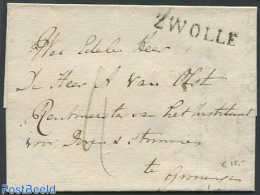 ZWOLLE
Wel Edele Heer
De Heer A van Olst
Rentmeester van het instituut
voor Doven & stommen
te Groningen
PostBeeld.com